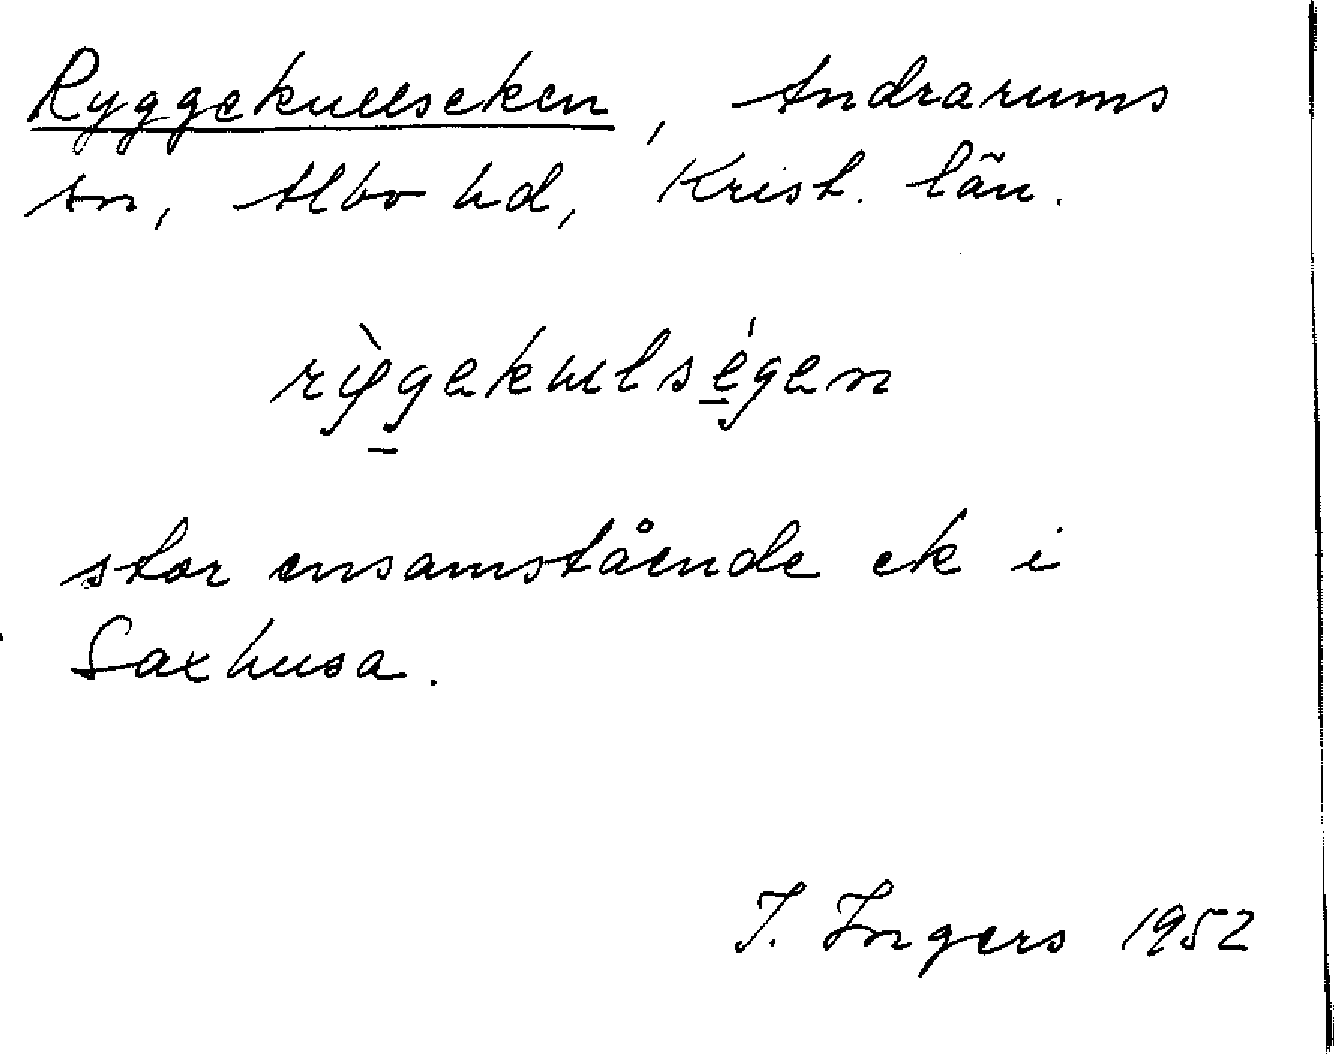 Ryggekullseken, Andrarums
sn, Albo hd, Krist. län.
rỳgekulségen
stor ensamstående ek i
Saxhusa.
I. Ingers 1952